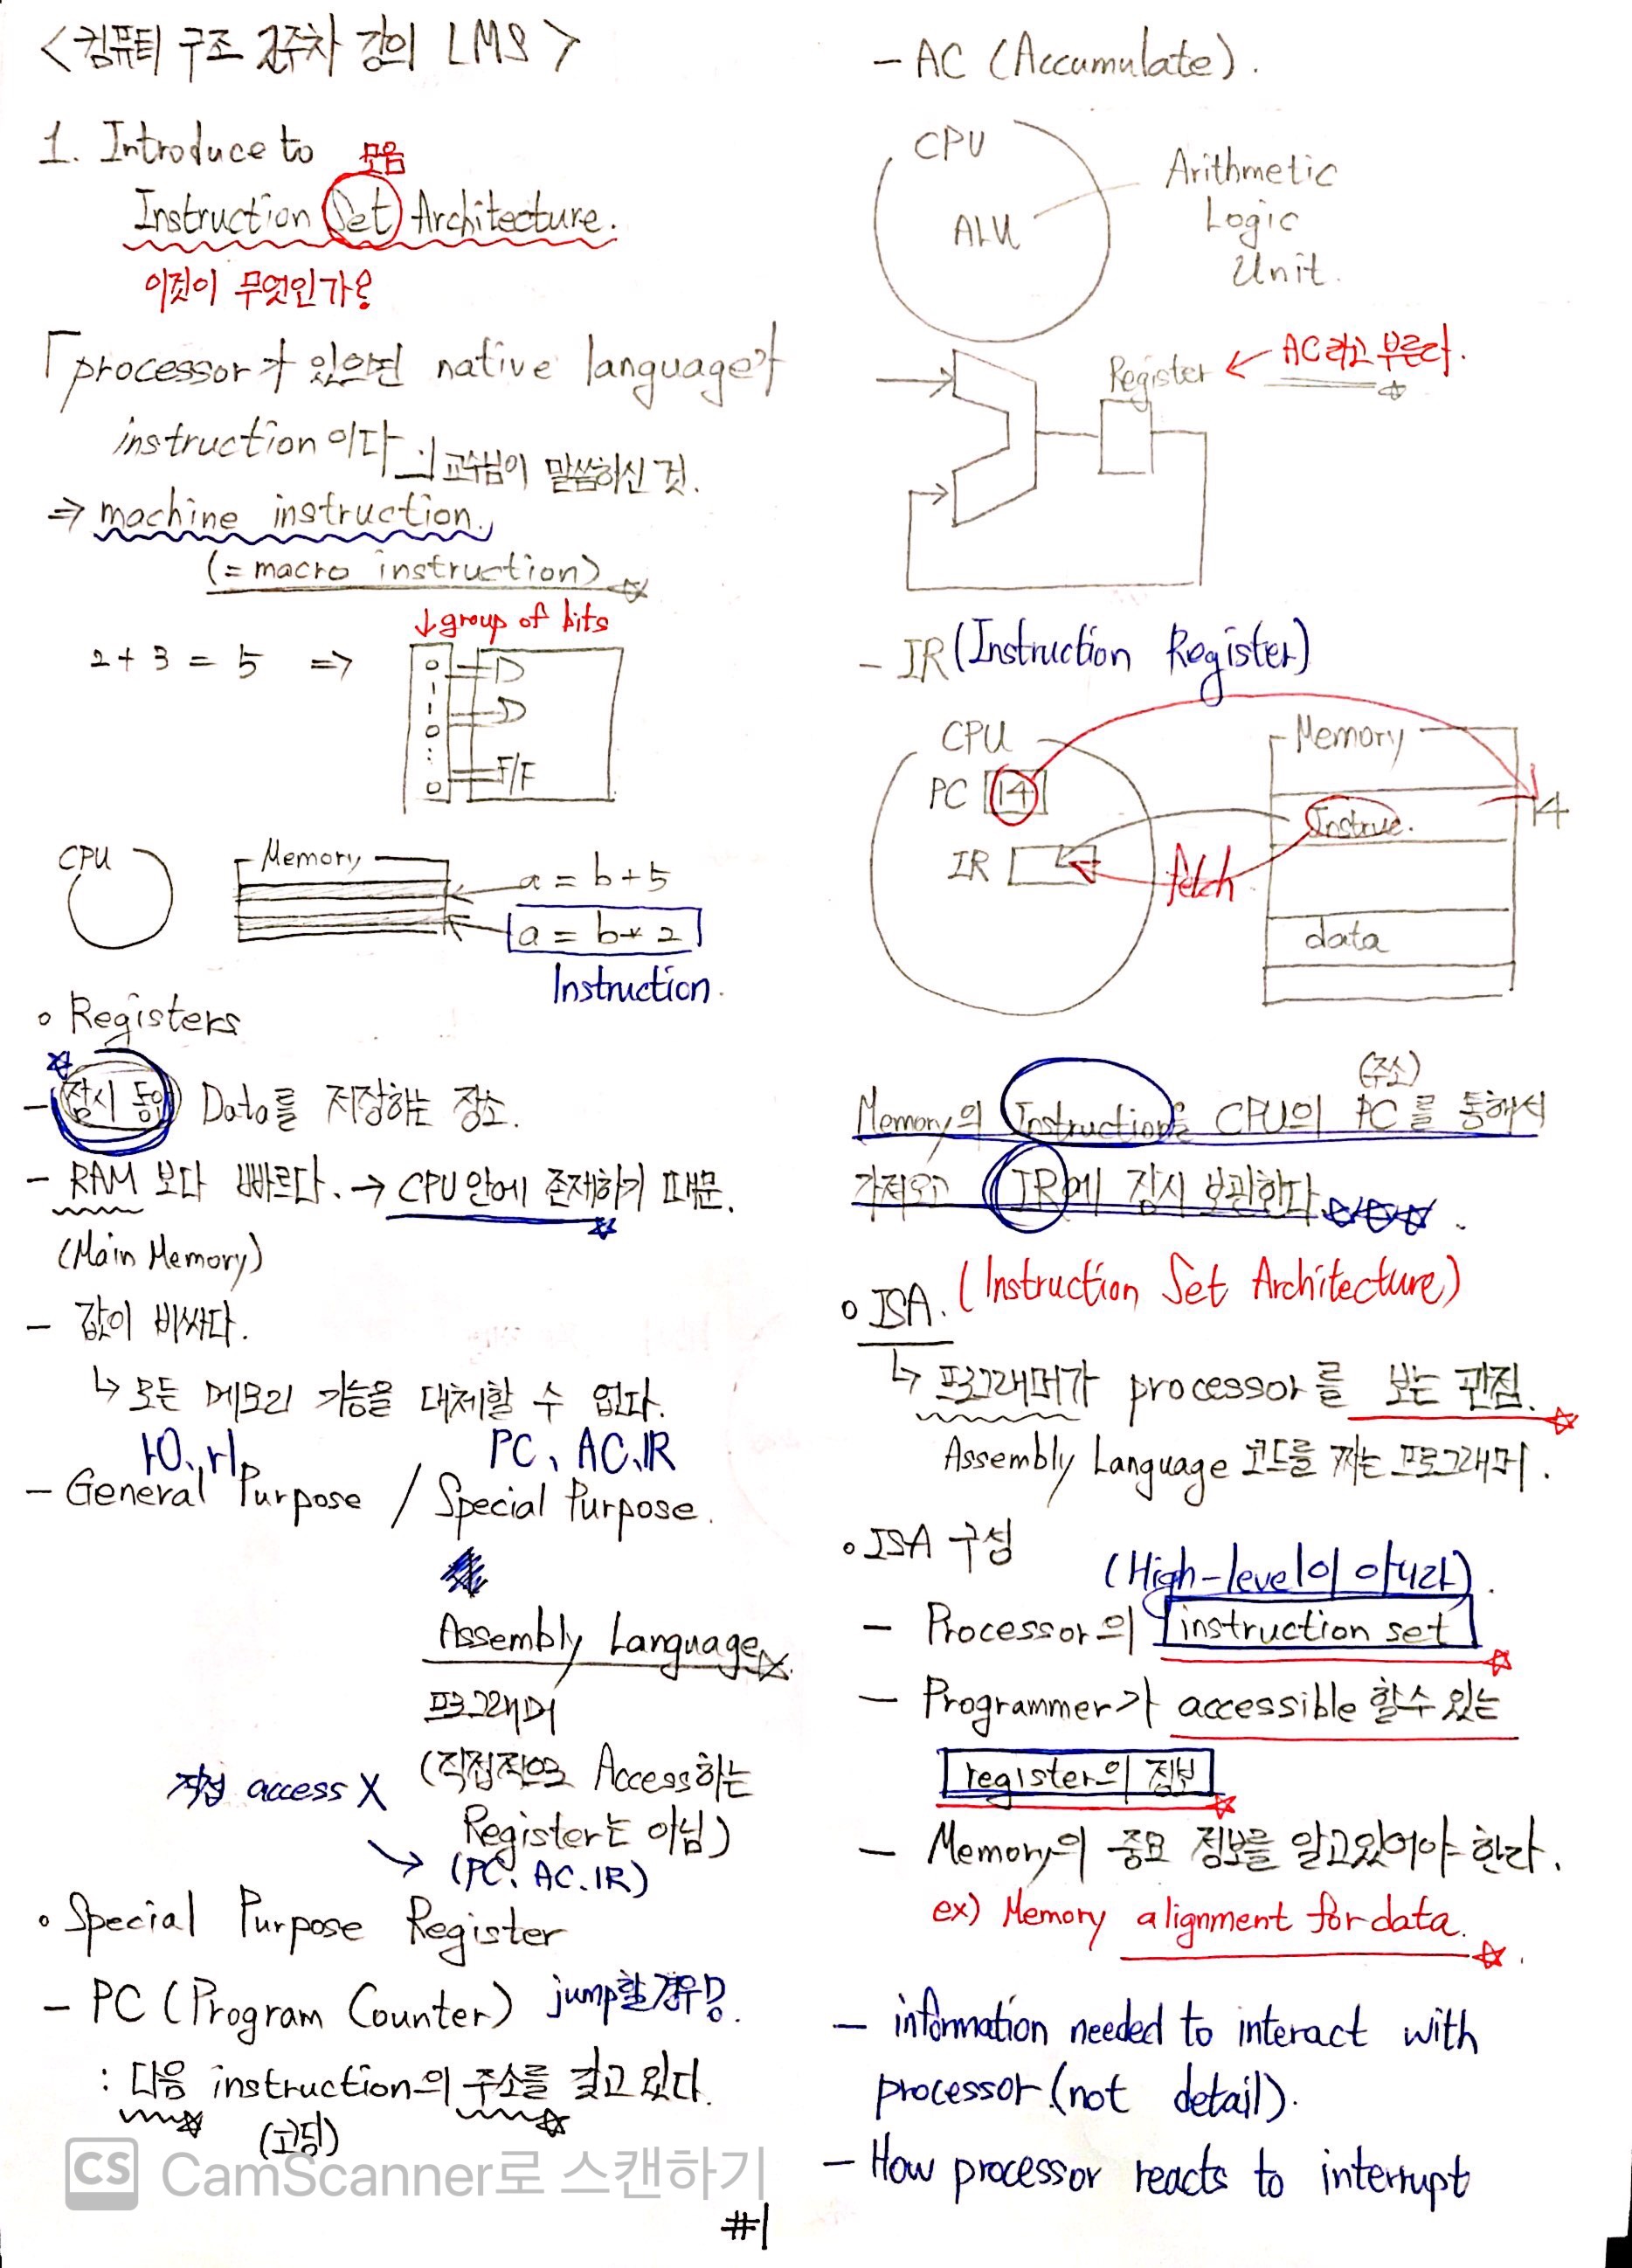 <컴퓨터 구조 2주차 강의 LMS>
1. Introduce to
모음
Instruction Set Architecture.
이것이 무엇인가?
「processor가 있으면 native language가
instruction이다」 교수님이 말씀하신 것.
⇒ machine instruction.
(= macro instruction) ☆
↓ group of bits
2 + 3 = 5 ⇒
0
1
1
0
⋮
0
F/F
CPU
Memory
a = b + 5
a = b * 2
Instruction.
◦ Registers
☆
- 잠시 동안 Data를 저장하는 장소.
- RAM 보다 빠르다. → CPU 안에 존재하기 때문.
☆
(Main Memory)
- 값이 비싸다.
↳ 모든 메모리 기능을 대체할 수 없다.
r0, r1. PC、AC、IR
- General Purpose / Special Purpose.
Assembly Language ☆
프로그래머
(직접적으로 Access하는
직접 access X
Register는 아님)
↘ (PC、AC、IR)
◦ Special Purpose Register
- PC (Program Counter) jump할 경우
: 다음 instruction의 주소를 갖고 있다.
☆ ☆
(코딩)
CS CamScanner로 스캔하기
#1
- AC (Accumulate).
CPU
ALU
Arithmetic
Logic
Unit.
Register ← AC라고 부른다.
☆
- IR (Instruction Register)
CPU
Memory
PC 14
Instruc. 14
IR
fetch
data
(주소)
Memory의 Instruction을 CPU의 PC를 통해서
가져오고 IR에 잠시 보관한다 ☆☆☆.
◦ ISA. (Instruction Set Architecture)
↳ 프로그래머가 processor를 보는 관점.
☆
Assembly Language 코드를 짜는 프로그래머.
◦ ISA 구성
(High-level이 아니라).
- Processor의 instruction set
☆
- Programmer가 accessible 할 수 있는
register의 정보
☆
- Memory의 중요 정보를 알고있어야 한다.
ex) Memory alignment for data.
☆
- information needed to interact with
processor.(not detail).
- How processor reacts to interrupt